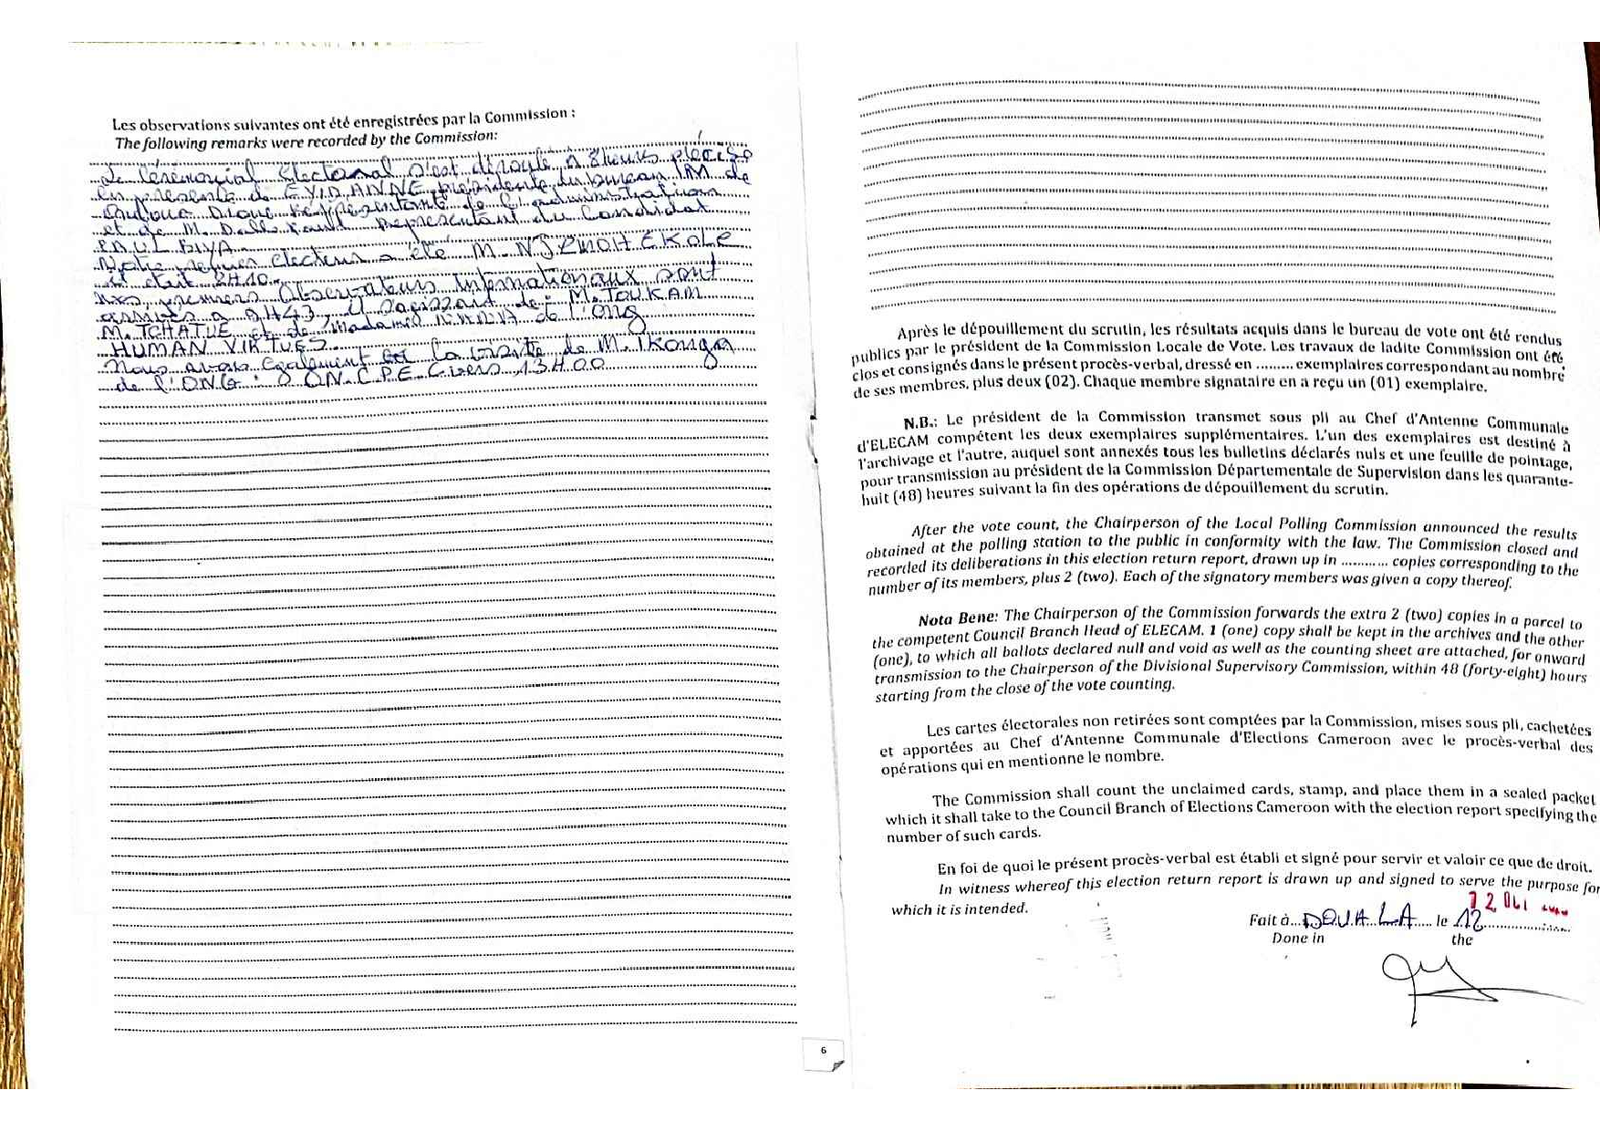 Les observations suivantes ont été enregistrées par la Commission :
The following remarks were recorded by the Commission:
Le Cérémonial électoral s'est déroulé à 8heures précise
en présence de EYIDI ANNE, présidente du bureau
représentante de l'administration
et de M. représentant du Candidat
PAUL BIYA.
Notre électeur a été M. NJEMOH EKOLE
il était 8H10.
Nos premiers Observateurs Internationaux sont
arrivés à 9H43, il s'agissait de : M. TOUKAM
M. TCHATUE et de Madame de l'ong
HUMAN VIRTUES.
Nous avons également eu la visite de M. Ikonga
de l'ONG : vers 13H00
Après le dépouillement du scrutin, les résultats acquis dans le bureau de vote ont été rendus
publics par le président de la Commission Locale de Vote. Les travaux de ladite Commission ont été
clos et consignés dans le présent procès-verbal, dressé en ......... exemplaires correspondant au nombre
de ses membres, plus deux (02). Chaque membre signataire en a reçu un (01) exemplaire.
N.B.: Le président de la Commission transmet sous pli au Chef d'Antenne Communale
d'ELECAM compétent les deux exemplaires supplémentaires. L'un des exemplaires est destiné à
l'archivage et l'autre, auquel sont annexés tous les bulletins déclarés nuls et une feuille de pointage,
pour transmission au président de la Commission Départementale de Supervision dans les quarante-
huit (48) heures suivant la fin des opérations de dépouillement du scrutin.
After the vote count, the Chairperson of the Local Polling Commission announced the results
obtained at the polling station to the public in conformity with the law. The Commission closed and
recorded its deliberations in this election return report, drawn up in ........... copies corresponding to the
number of its members, plus 2 (two). Each of the signatory members was given a copy thereof.
Nota Bene: The Chairperson of the Commission forwards the extra 2 (two) copies in a parcel to
the competent Council Branch Head of ELECAM. 1 (one) copy shall be kept in the archives and the other
(one), to which all ballots declared null and void as well as the counting sheet are attached, for onward
transmission to the Chairperson of the Divisional Supervisory Commission, within 48 (forty-eight) hours
starting from the close of the vote counting.
Les cartes électorales non retirées sont comptées par la Commission, mises sous pli, cachetées
et apportées au Chef d'Antenne Communale d'Elections Cameroon avec le procès-verbal des
opérations qui en mentionne le nombre.
The Commission shall count the unclaimed cards, stamp, and place them in a sealed packet
which it shall take to the Council Branch of Elections Cameroon with the election report specifying the
number of such cards.
En foi de quoi le présent procès-verbal est établi et signé pour servir et valoir ce que de droit.
In witness whereof this election return report is drawn up and signed to serve the purpose for
which it is intended.
Fait à DOUALA le 12
Done in the
6